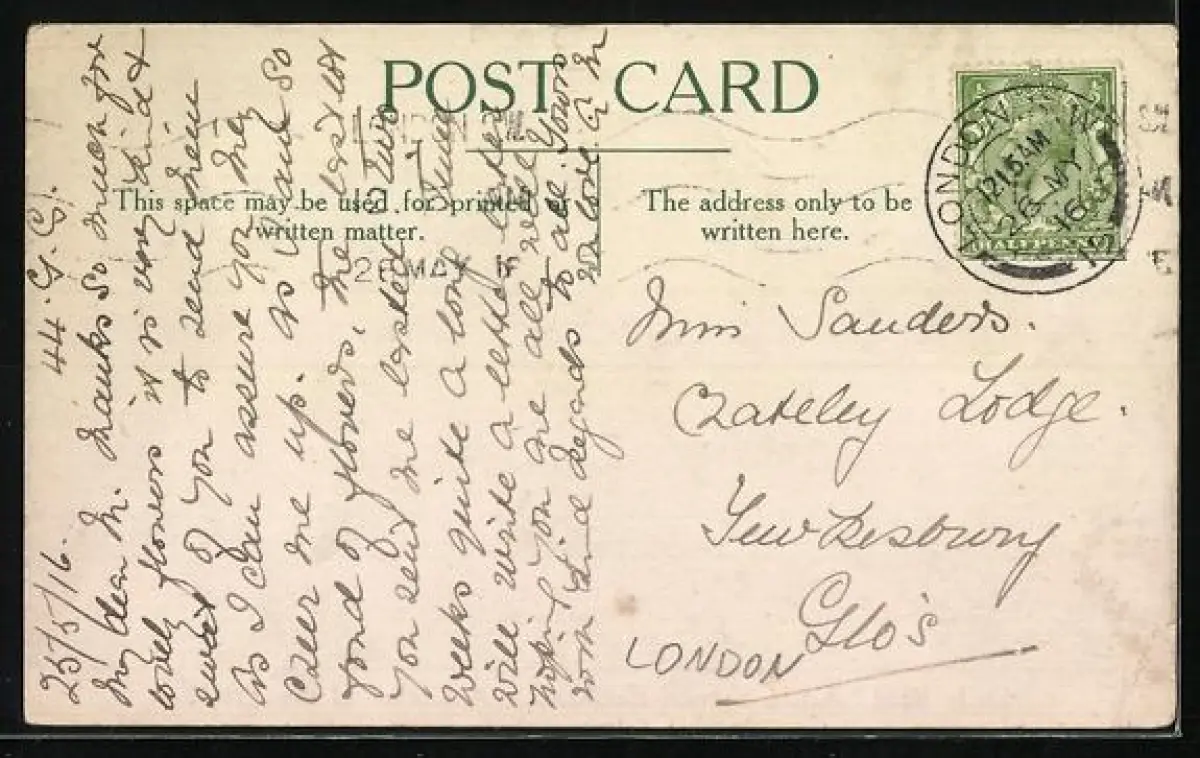 POST CARD
This space may be used for printed or
written matter.
The address only to be
written here.
LONDON W
12.15 AM
26 MY
16
HALFPENNY
26 MAY
25/5/16. 44. G. G.
My dear M. Thanks so much for
lovely flowers it is very kind &
sweet of you to send them
As I can assure you they
cheer me up. as I am so
fond of flowers, the last lot
you sent me lasted 2 two
weeks quite a long time
will write a letter later
hoping you are all well Yours
with kind regards to all.
love
Miss Sanders.
Lodge.
Tewkesbury
Glo's
LONDON